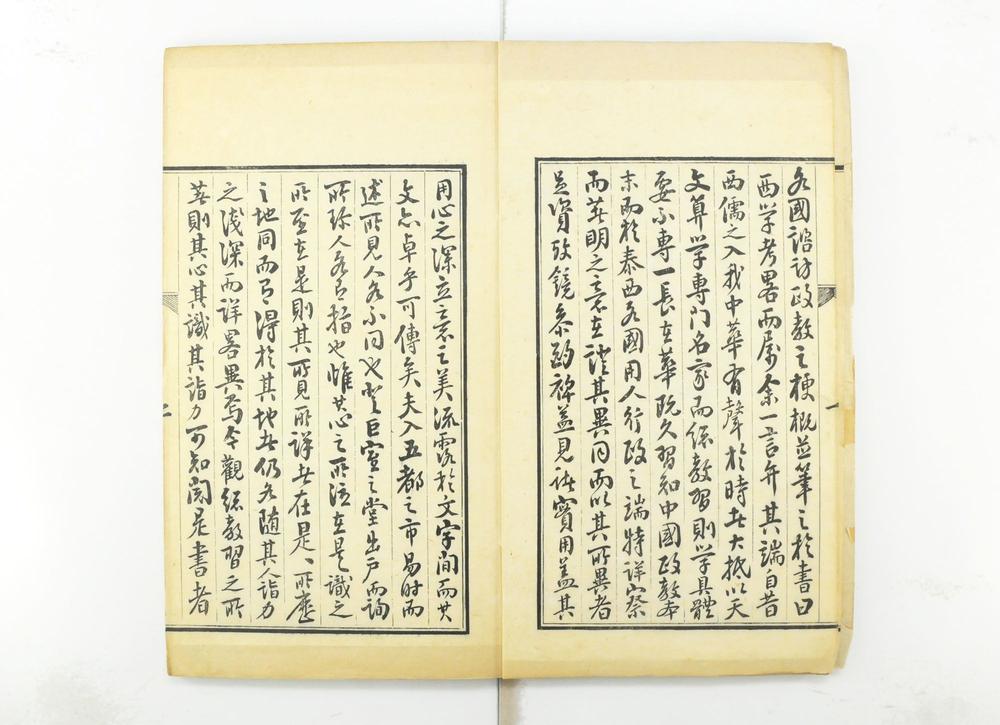 各國諮訪政教之梗概並筆之於書曰
西学考畧而属余一言弁其端自昔
西儒之入我中華有聲於時者大抵以天
文算学專門名家而總教習則学具體
要不專一長在華既久習知中國政教本
末而於泰西各國用人行政之端特詳察
而并明之意在證其異同而以其所異者
藉資攷鏡參酌裨益見诸實用蓋其
一
用心之深立意之美流露於文字间而其
文亦卓乎可傳矣夫入五都之市易时而
述所見人各不同也登巨室之堂出户而詢
所珍人各有指也惟其心之所注在是識之
所至在是則其所見所詳者在是、所歷
之地同而有得於其地者仍各随其人詣力
之淺深而詳畧異焉今觀總教習之所
若則其心其識其詣力可知閱是書者
二